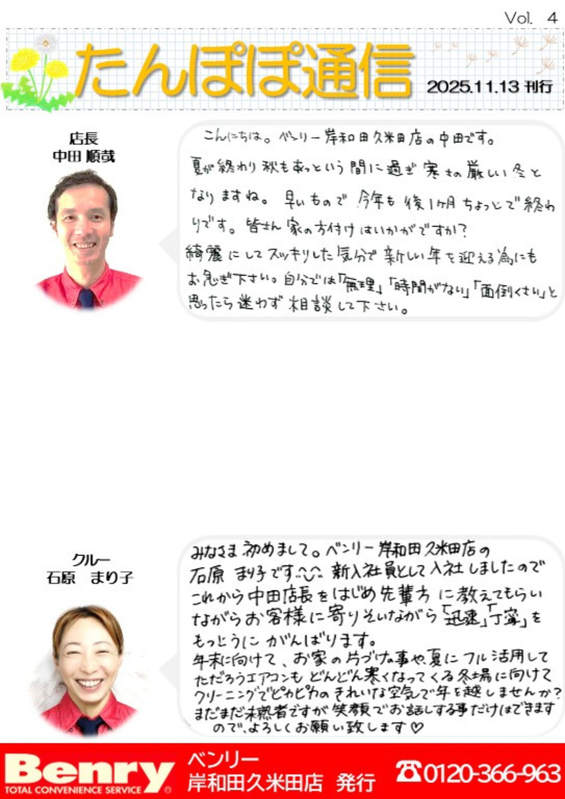 Vol. 4
たんぽぽ通信
2025.11.13 刊行
店長
中田 順哉
こんにちは。ベンリー岸和田久米田店の中田です。
夏が終わり秋もあっという間に過ぎ寒さの厳しい冬と
なりますね。早いもので今年も後1ヶ月ちょっとで終わ
りです。皆さん家の方付けはいかがですか?
綺麗にしてスッキリした気分で新しい年を迎える為にも
お急ぎ下さい。自分では「無理」「時間がない」「面倒くさい」と
思ったら迷わず相談して下さい。
クルー
石原 まり子
みなさま初めまして。ベンリー岸和田久米田店の
石原まり子です 新入社員として入社しましたので
これから中田店長をはじめ先輩方に教えてもらい
ながらお客様に寄りそいながら「迅速」「丁寧」を
もっとうにがんばります。
年末に向けて、お家の片づけの事や夏にフル活用して
ただろうエアコンもどんどん寒くなってくる冬場に向けて
クリーニングでピカピカのきれいな空気で年を越しませんか?
まだまだ未熟者ですが笑顔でお話しする事だけはできます
ので、よろしくお願い致します♡
Benry
TOTAL CONVENIENCE SERVICE
ベンリー
岸和田久米田店 発行
☎0120-366-963